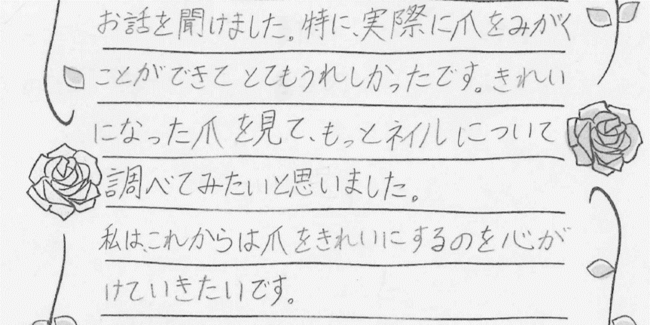 お話を聞けました。特に、実際に爪をみがく
ことができてとてもうれしかったです。きれい
になった爪を見て、もっとネイルについて
調べてみたいと思いました。
私は、これからは爪をきれいにするのを心が
けていきたいです。